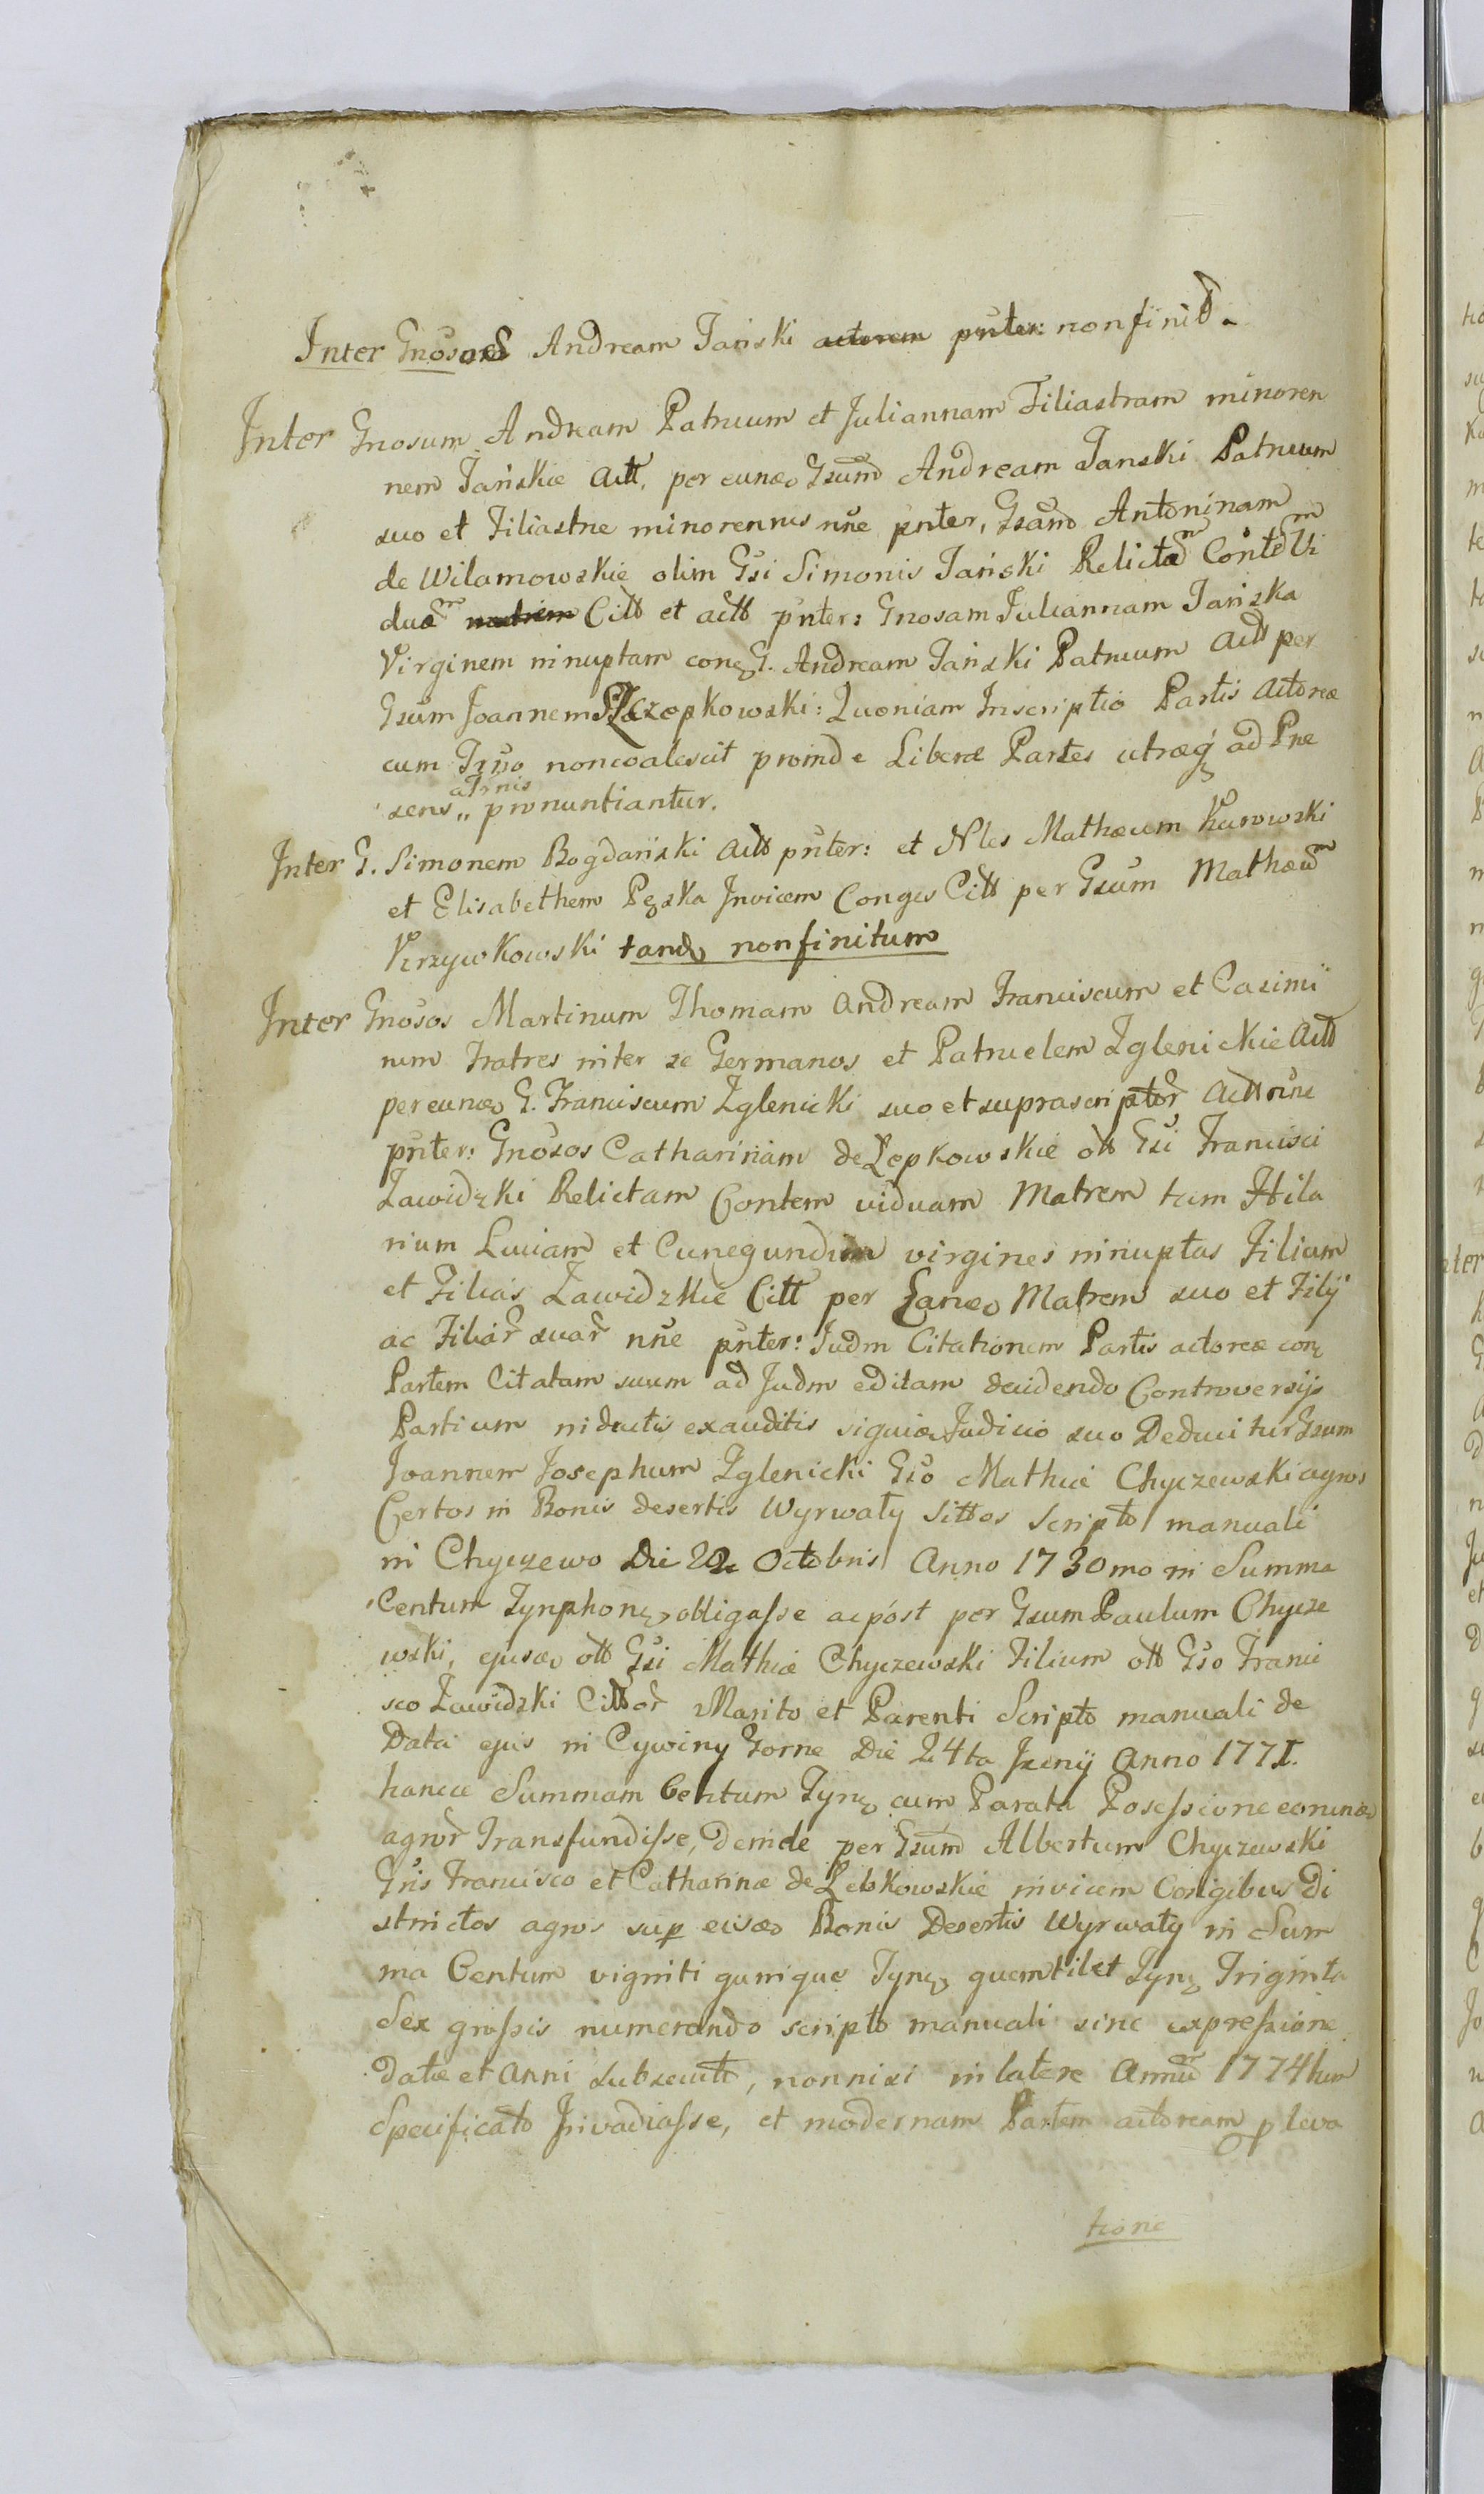 Inter Gnosos Andream Jański actorem pnter: nonfinitt.
Inter Gnosum Andream Patruum et Juliannam Filiastram minoren
nem Jańskie Actt. per eunde Gsum Andream Janski Patruum
suo et Filiastræ minorennis nne pnter, Gsam Antoninam
de Wilamowskie olim Gsi Simonis Jański Relictam Contem Vi
duam matrem Citt et actt pnter: Gnosam Juliannam Jańska
Virginem innuptam con G. Andream Jański Patruum Actt per
Gsum Joannem Rzopkowski: Quoniam Inscriptio Partis Actoreæ
cum Trmo noncoalescit proinde Liberæ Partes utræq ad Præ
sens a Trnis pronuntiantur.
Inter G. Simonem Bogdański Actt pnter: et Nles Mathæum Kurowski
et Elisabethem Pęska Invicem Conges Citt per Gsum Mathæum
Krzywkowski tand nonfinitum
Inter Gnosos Martinum Thomam Andream Franciscum et Casimi
rum Fratres inter se Germanos et Patruelem Zglenickie Actt
per eunde G. Franciscum Zglenicki suo et suprascriptor Actt nne
pnter: Gnosos Catharinam de Łopkowskie ott Gsi Francisci
Zawidzki Relictam Contem viduam Matrem tum Hila
rium Luciam et Cunegundim virgines innuptas Filium
et Filias Zawidzkie Citt per Eande Matrem suo et Filij
ac Filiar suar nne pnter: Judm Citationem Partis actoreæ con
Partem Citatam suum ad Judm editam decidendo Controversijs
Partium inductis exauditis siquidæ Judicio suo Deducitur Gsum
Joannem Josephum Zglenicki Gso Mathiæ Chyczewski agros
Certos in Bonis desertis Wyrwały Sittos Scripto manuali
in Chyczewo Die 22 Octobris Anno 1730mo in Summa
Centum Tynphon obligasse ac póst per Gsum Paulum Chycze
wski, ejusde ott Gsi Mathiæ Chyczewski Filium ott Gso Franci
sco Zawidzki Cittor Marito et Parenti Scripto manuali de
Data ejus in Cywiny Gorne Die 24ta Junij Anno 1771.
hancce Summam Centum Tyn cum Parata Possessione eorunde
agror Transfundisse, Deinde per Gsum Albertum Chyczewski
Gsis Francisco et Catharinæ de Łebkowskie invicem Congibus Di
strictos agros sup eisde Bonis Desertis Wyrwały in Sum
ma Centum viginti quinque Tyn quemlibet Tyn Triginta
Sex grossis numerando scripto manuali sine expressione
Datæ et Anni subsecuto, nonnisi in latere Annum 1774tum
Specificato Invadiasse, et modernam Partem actoream p leva
tione